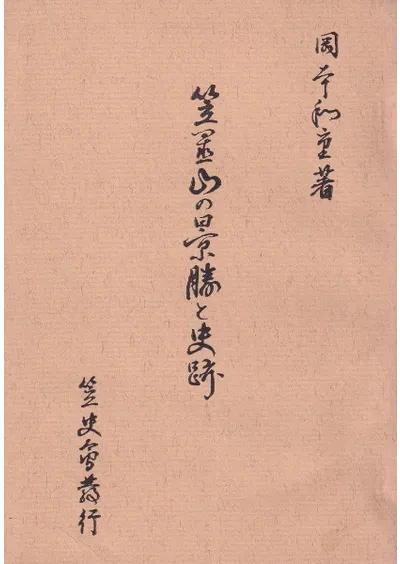 岡本和重著
笠置山の景勝と史跡
笠史會發行